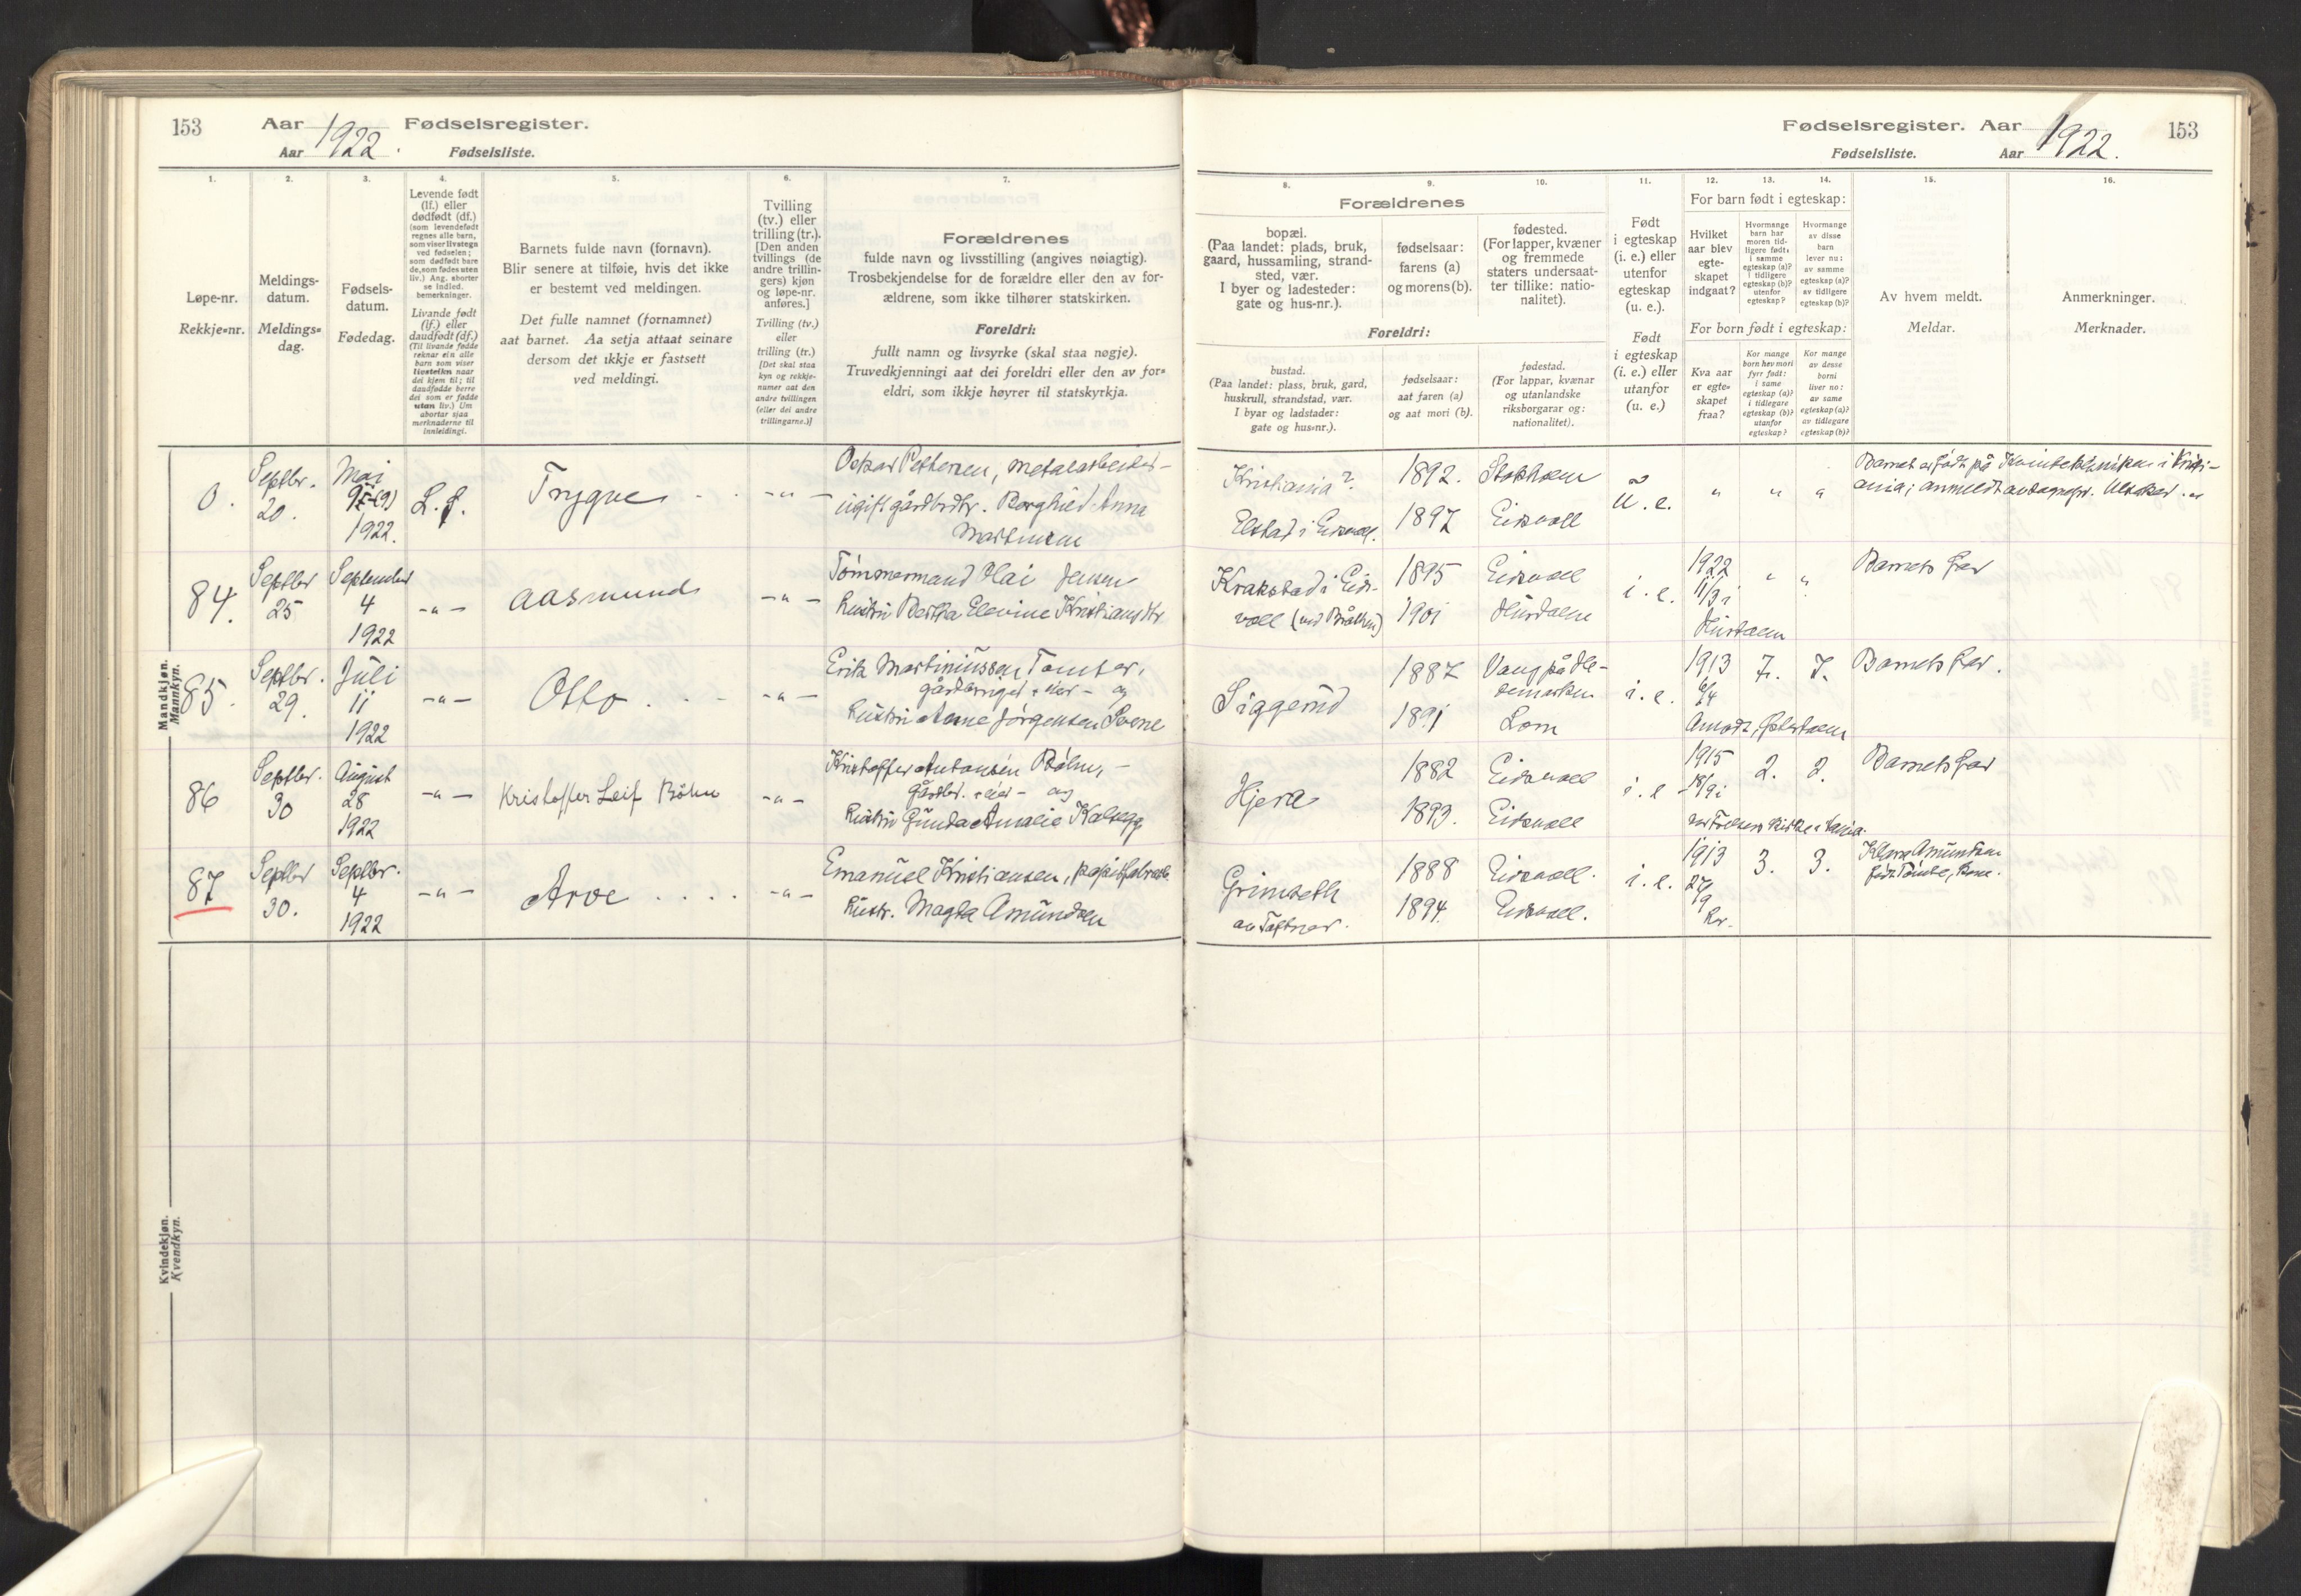 153 Aar 1922. Fødselsregister.
Aar Fødselsliste.
Fødselsregister. Aar 1922. 153
Fødselsliste. Aar
1. 2. 3. 4. 5. 6. 7.
Løpe-nr.
Rekkje=nr.
Meldings-
datum.
Meldings=
dag.
Fødsels-
datum.
Fødedag.
Levende født
(lf.) eller
dødfødt (df.)
(som levendefødt
regnes alle barn,
som viser livstegn
ved fødselen;
som dødfødt bare
de, som fødes uten
liv.) Ang. aborter
se indled.
bemerkninger.
Livande født
(lf.) eller
daudfødt (df.)
(Til livande fødde
reknar ein alle
barn som viser
livsteikn naar
dei kjem til; til
daudfødde berre
dei som er fødde
utan liv.) Um
abortar sjaa
merknaderne til
innleidingi.
Barnets fulde navn (fornavn).
Blir senere at tilføie, hvis det ikke
er bestemt ved meldingen.
Det fulle namnet (fornamnet)
aat barnet. Aa setja attaat seinare
dersom det ikkje er fastsett
ved meldingi.
Tvilling
(tv.) eller
trilling (tr.).
[Den anden
tvillings (de
andre trillin-
gers) kjøn
og løpe-nr.
anføres.]
Tvilling (tv.)
eller
trilling (tr.)
[Det skal staa
kyn og rekkje-
numer aat den
andre tvillingen
(eller dei andre
trillingarne.)]
Forældrenes
fulde navn og livsstilling (angives nøiagtig).
Trosbekjendelse for de forældre eller den av for-
ældrene, som ikke tilhører statskirken.
Foreldri:
fullt namn og livsyrke (skal staa nøgje).
Truvedkjenningi aat dei foreldri eller den av for=
eldri, som ikkje høyrer til statskyrkja.
8. 9. 10. 11. 12. 13. 14. 15. 16.
Forældrenes
bopæl.
(Paa landet: plads, bruk,
gaard, hussamling, strand-
sted, vær.
I byer og ladesteder:
gate og hus-nr.).
fødselsaar:
farens (a)
og morens (b).
fødested.
(For lapper, kvæner
og fremmede
staters undersaat-
ter tillike: natio-
nalitet).
Foreldri:
bustad.
(Paa landet: plass, bruk, gard,
huskrull, strandstad, vær.
I byar og ladstader:
gate og hus=nr.).
fødselsaar:
aat faren (a)
og aat mori (b).
fødestad.
(For lappar, kvænar
og utanlandske
riksborgarar og:
nationalitet).
Født
i egteskap
(i. e.) eller
utenfor
egteskap
(u. e.).
Født
i egteskap
(i. e.) eller
utanfor
(u. e.)
For barn født i egteskap:
Hvilket
aar blev
egte-
skapet
indgaat?
Hvormange
barn har
moren tid-
ligere født:
i samme
egteskap (a)?
i tidligere
egteskap (b)?
utenfor
egteskap?
Hvormange
av disse
barn
lever nu:
av samme
egteskap (a)?
av tidligere
egteskap (b)?
For born født i egteskap:
Kva aar
er egte=
skapet
fraa?
Kor mange
born hev mori
fyrr født:
i same
egteskap (a)?
i tidlegare
egteskap (b)?
utanfor
egteskap?
Kor mange
av desse
borni
liver no:
av same
egteskap (a)?
av tidlegare
egteskap (b)?
Av hvem meldt.
Meldar.
Anmerkninger.
Merknader.
Mandkjøn.
Mannkyn.
0. Septbr. 20. Mai 1922. L. f. Trygve -"- Oskar Pettersen, metalarbeider -
ugift gårdbrdtr. Borghild Anna
Martinsen
Kristiania? 1892. Stokholm u. e. " " "
Elstad i Eidsvoll. 1897 Eidsvoll
Barnet er født på Kvindeklinikken i Kristi-
ania; anmeldt av sognepr.
84. Septbr 25 September 4 1922 -"- Aasmund -"- Tømmermand Olai Jensen
Hustru Bertha Elevine Kristiansdtr
Krakstad i Eids- 1895 Eidsvoll i. e. 1922 11/3 i " " Barnets far
voll (ved Bråthen) 1901 Hurdalen Hurdalen
85. Septbr. 29. Juli 11 1922 -"- Otto -"- Erik Martiniussen Tomter,
gårdbruger + eier - og
Hustru Anne Jørgensen
Siggerud 1887 Vang på He-
demarken i. e. 1913 6/4 7. 7. Barnets far.
1891 Lom Amodt, Østerdalen
86 Septbr. 30 August 28 1922 -"- Kristoffer Leif Böhn -"- Kristoffer Antonsen Bøhn, -
gårdbr. + eier - og
Hustru Gunda Amalie Kalsegg
Hjera 1882 Eidsvoll i. e 1915 18/9 i 2. 2. Barnets far
1893. Eidsvoll
87 Septbr 30. Septbr. 4 1922 -"- Arve . . . . -"- Emanuel Kristiansen, papirfabrarb.
Hustr. Magda Amundsen
Grimseth 1888 Eidsvoll. i. e. 1913 27/9 Kr. 3. 3. Klara Amundsen
av Tøftner. 1894. Eidsvoll.
Kvindekjøn.
Kvendkyn.